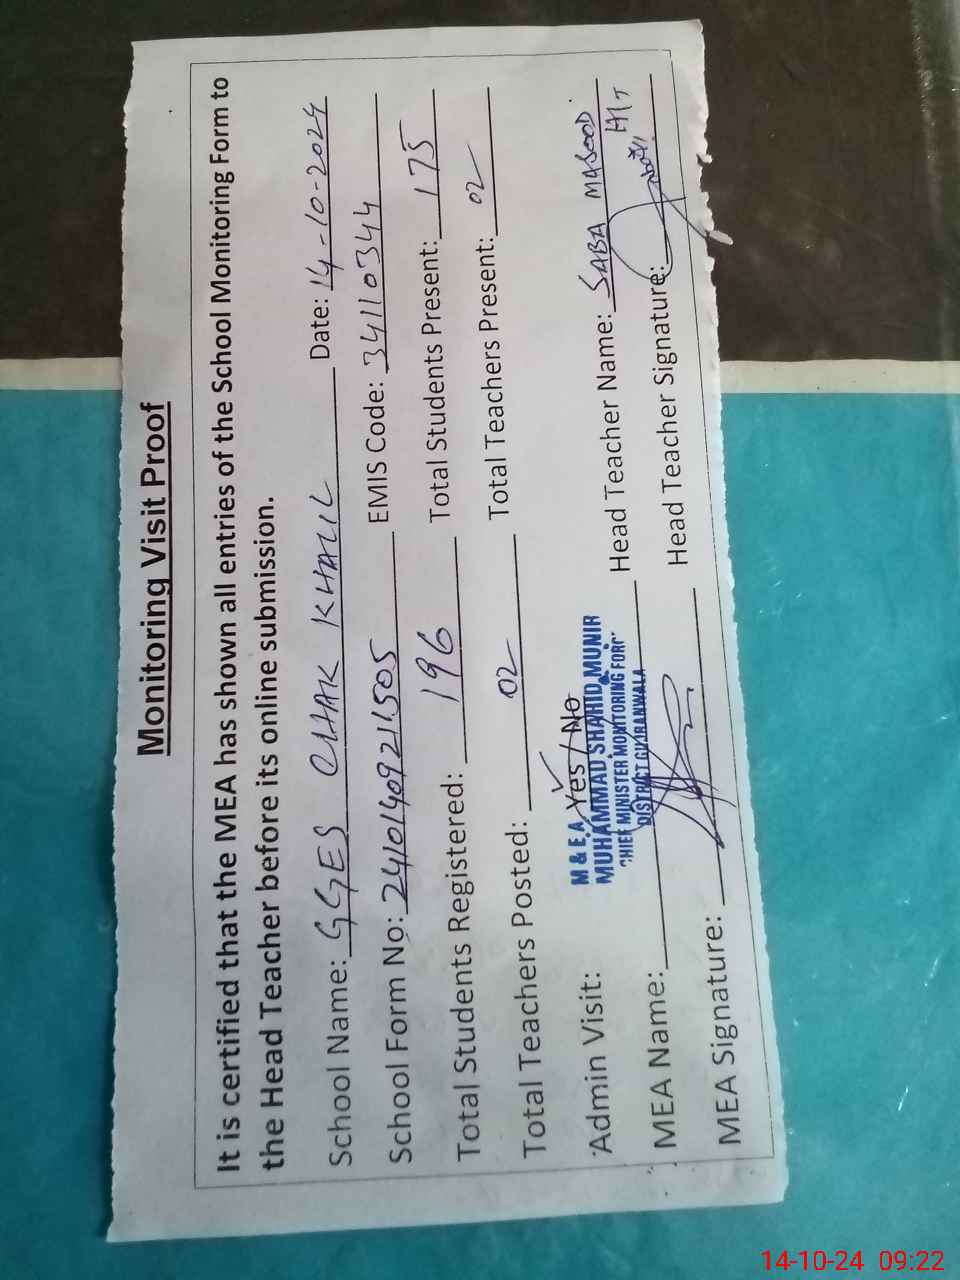 Monitoring Visit Proof
It is certified that the MEA has shown all entries of the School Monitoring Form to
the Head Teacher before its online submission.
School Name: GGES CHAK KHALIL Date: 14-10-2024
School Form No: 24101409211505 EMIS Code: 34110344
Total Students Registered: 196 Total Students Present: 175
Total Teachers Posted: 02 Total Teachers Present: 02
Admin Visit: Yes / No
M & E A
MUHAMMAD SHAHID MUNIR
CHIEF MINISTER MONITORING FORC
DISTRICT GUJRANWALA
MEA Name: Head Teacher Name: SABA MASOOD
MEA Signature: Head Teacher Signature:
14-10-24 09:22